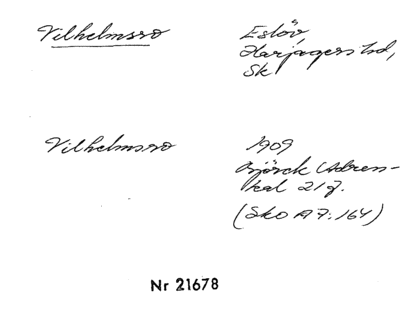 Vilhelmsro Eslöv,
Harjagers hd,
Sk
Vilhelmsro 1909
Björck Adress-
kal 217.
(Sko A 7:164)
Nr 21678